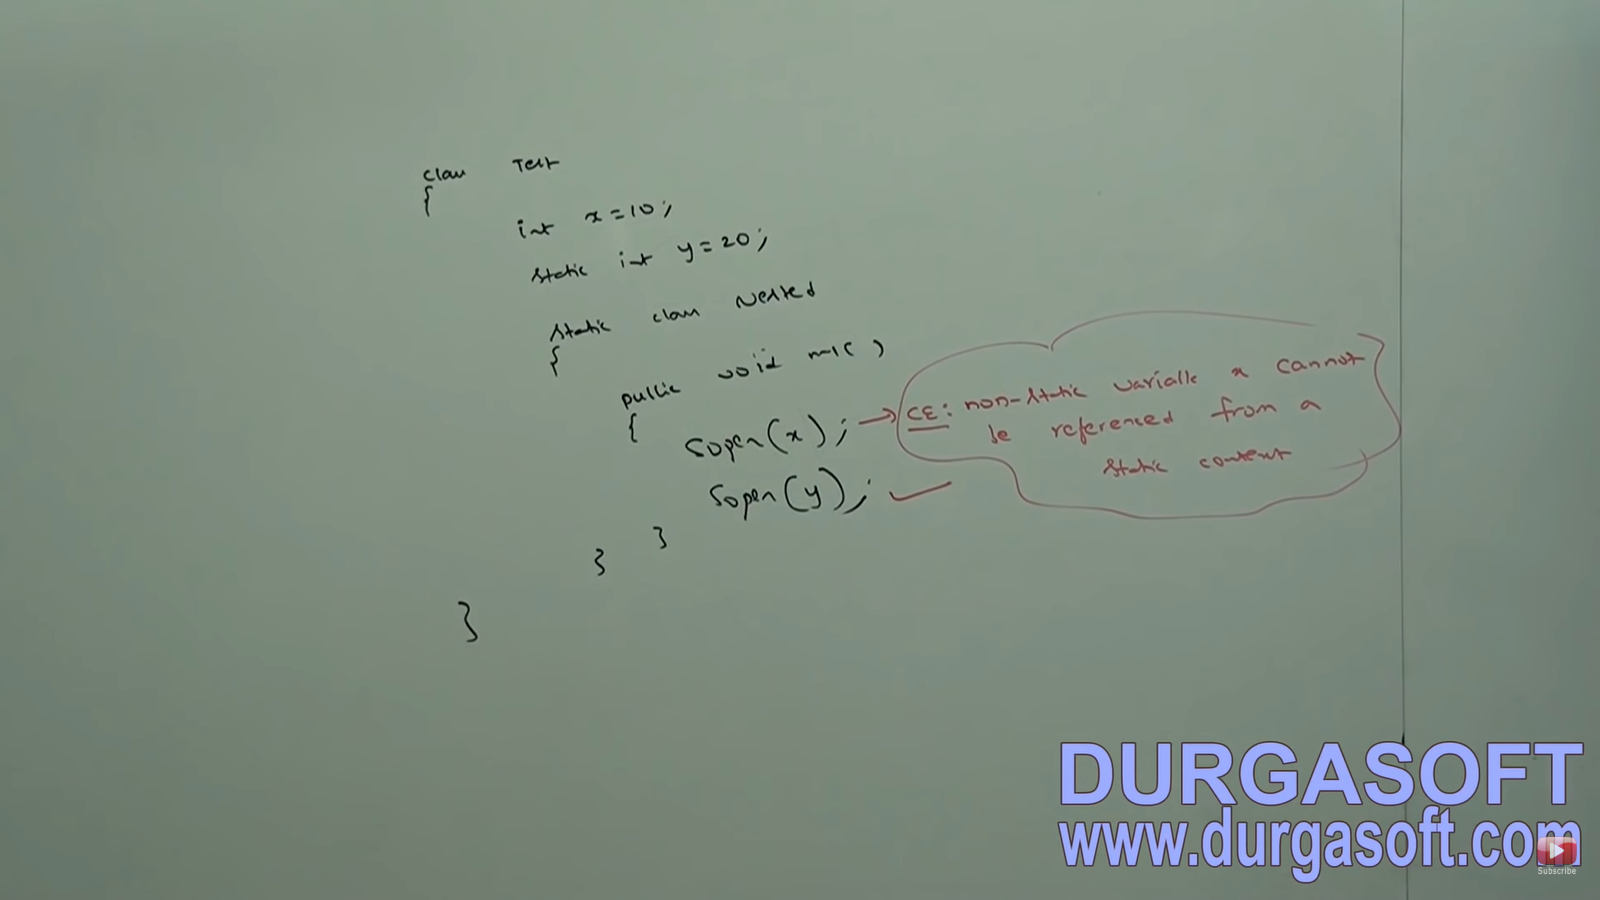 class Test
{
int x=10;
static int y=20;
static class Nested
{
public void m1( )
{
Sopln(x); → CE: non-static variable x cannot
be referenced from a
static context
Sopln(y); ✓
}
}
}
DURGASOFT
www.durgasoft.com
Subscribe